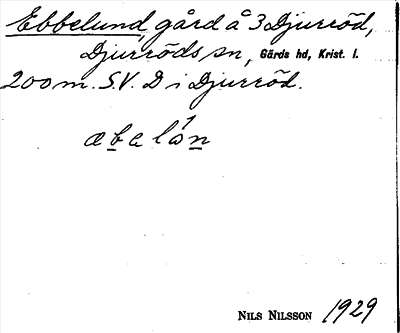 Ebbelund, gård å 3 Djurröd,
Djurröds sn, Gärds hd, Krist. l.
200 m. S.V. D i Djurröd.
æbəlán
NILS NILSSON 1929